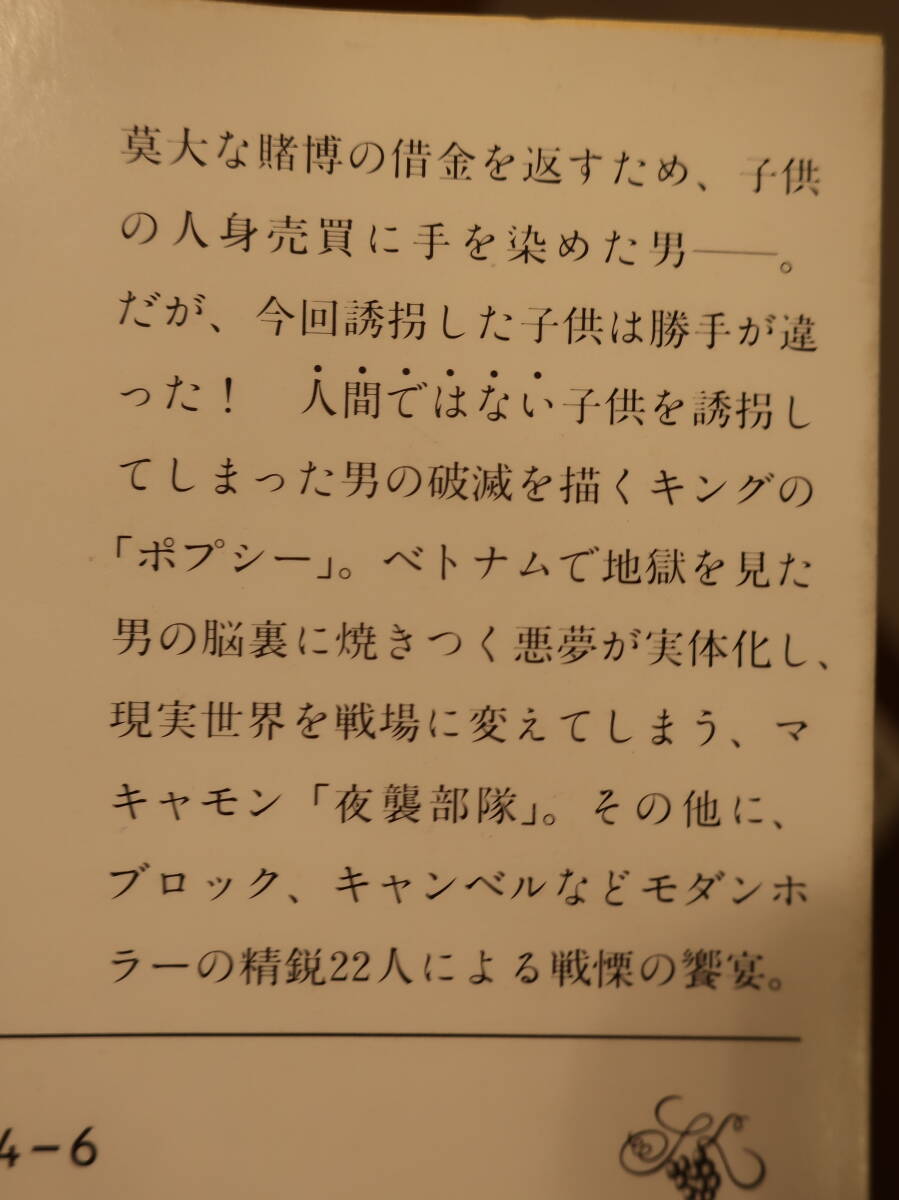 莫大な賭博の借金を返すため、子供
の人身売買に手を染めた男――。
だが、今回誘拐した子供は勝手が違
った！　人間ではない子供を誘拐し
てしまった男の破滅を描くキングの
「ポプシー」。ベトナムで地獄を見た
男の脳裏に焼きつく悪夢が実体化し、
現実世界を戦場に変えてしまう、マ
キャモン「夜襲部隊」。その他に、
ブロック、キャンベルなどモダンホ
ラーの精鋭22人による戦慄の饗宴。
4-6